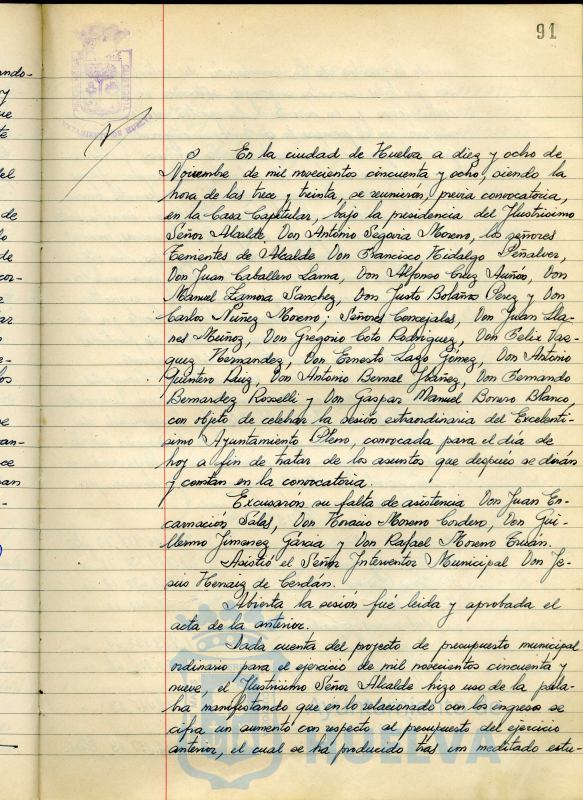 91
En la ciudad de Huelva, a diez y ocho de
Noviembre de mil novecientos cincuenta y ocho, siendo la
hora de las trece y treinta, se reunieron, previa convocatoria,
en la Casa Capitular, bajo la presidencia del Ilustrisimo
Señor Alcalde Don Antonio Segovia Moreno, los señores
Tenientes de Alcalde Don Francisco Hidalgo Peñalver,
Don Juan Caballero Lama, Don Alfonso Cruz Auñón, Don
Manuel Zamora Sanchez, Don Justo Bolaños Perez y Don
Carlos Nuñez Moreno; Señores Concejales, Don Juan Lla-
nes Muñoz, Don Gregorio Coto Rodriguez, Don Felix Vaz-
quez Hernandez, Don Ernesto Lazo Gomez, Don Antonio
Quintero Ruiz, Don Antonio Bernal Ybañez, Don Fernando
Bernardez Rosselli y Don Gaspar Manuel Borrero Blanco,
con objeto de celebrar la sesión extraordinaria del Excelenti-
simo Ayuntamiento Pleno, convocada para el dia de
hoy a fin de tratar de los asuntos que después se dirán
y constan en la convocatoria.
Excusarón su falta de asistencia Don Juan En-
carnación Salas, Don Horacio Moreno Cordero, Don Gui-
llermo Jimenez Garcia y Don Rafael Moreno
Asistió el Señor Interventor Municipal Don Je-
sús Henaiz de Cerdán.
Abierta la sesión fué leida y aprobada el
acta de la anterior.
Dada cuenta del proyecto de presupuesto municipal
ordinario para el ejercicio de mil novecientos cincuenta y
nueve, el Ilustrisimo Señor Alcalde hizo uso de la pala-
bra manifestando que en lo relacionado con los ingresos se
cifra un aumento con respecto al presupuesto del ejercicio
anterior, el cual se ha producido tras un meditado estu-
HUELVA